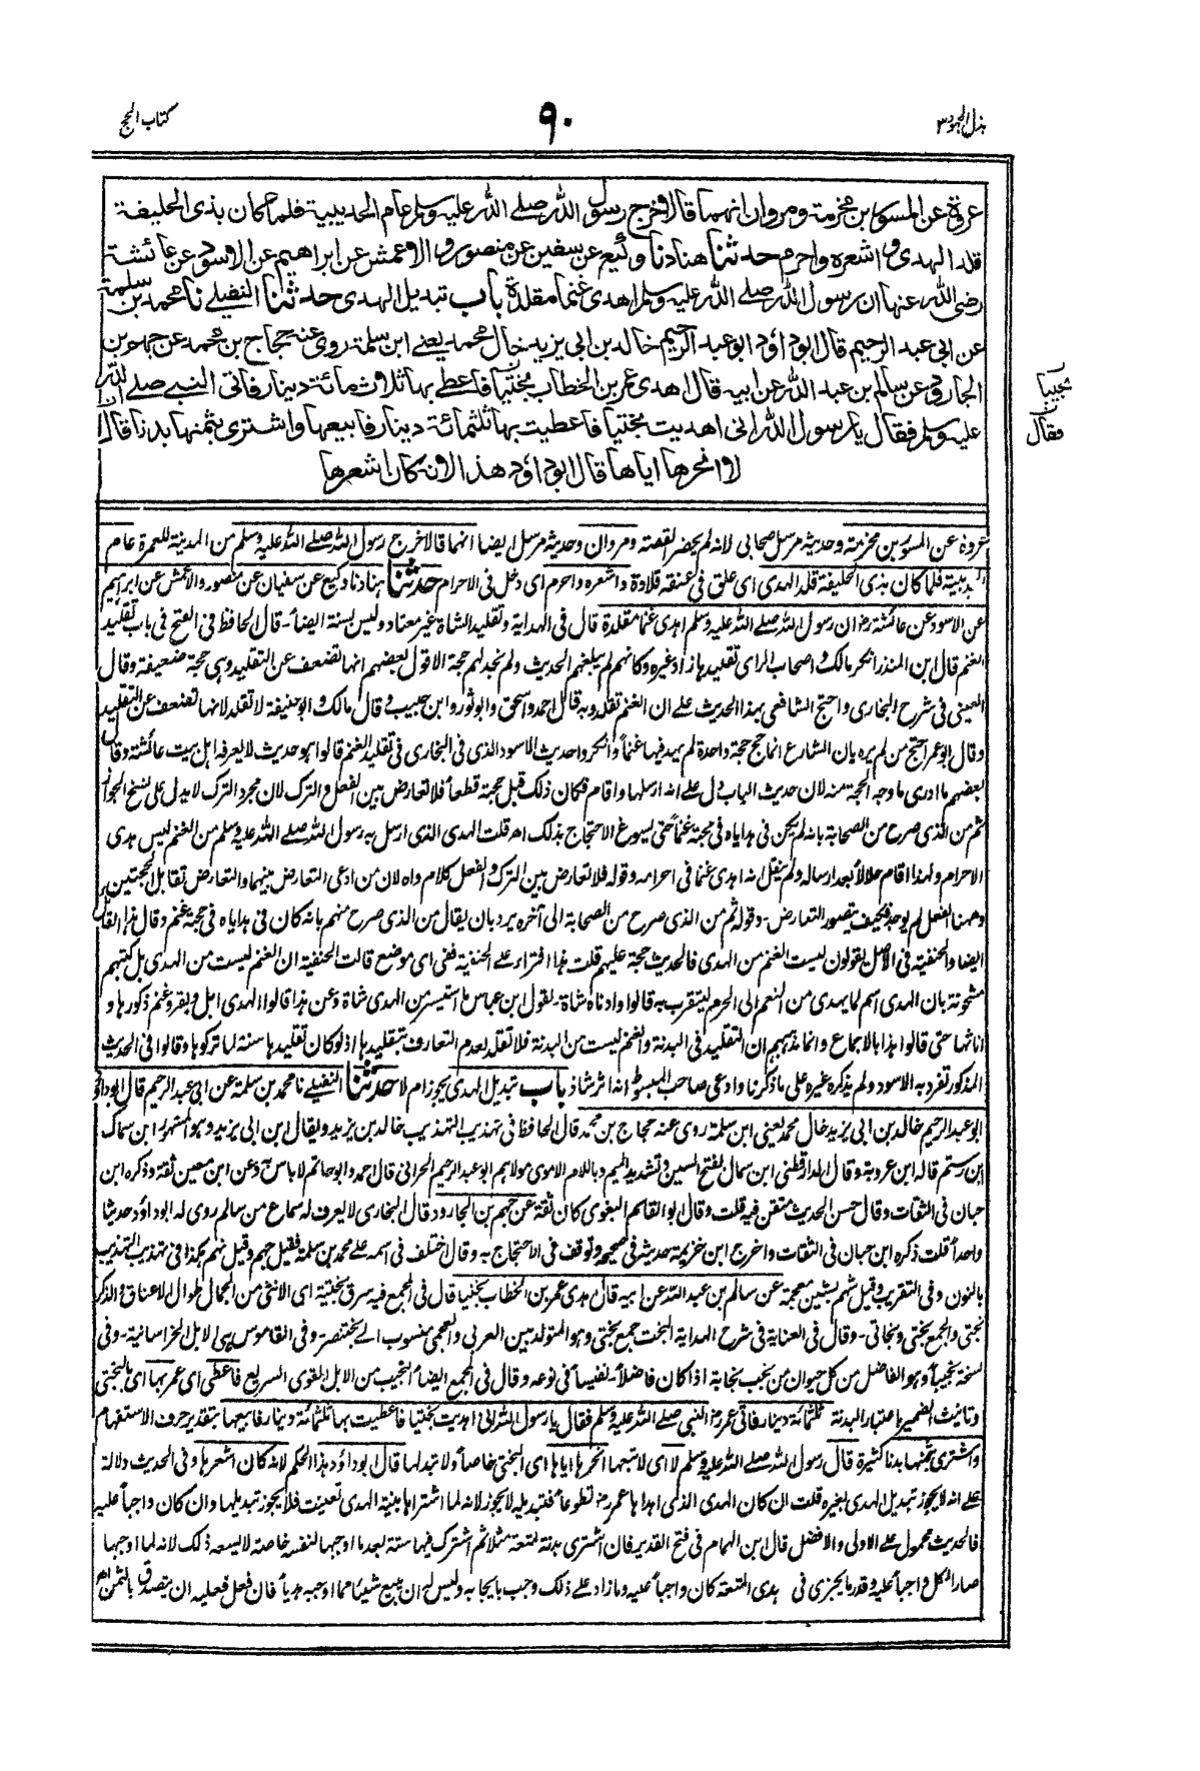 بذل المجهود ٣
٩٠
كتاب الحج
عروة عن المسور بن مخرمة ومروان انهما قالا خرج رسول الله صلى الله عليه وسلم عام الحديبية فلما كان بذى الحليفة
قلد الهدى واشعره واحرم حدثنا هناد نا وكيع عن سفين عن منصور والاعمش عن ابراهيم عن الاسود عن عائشة
رضى الله عنها ان رسول الله صلى الله عليه وسلم اهدى غنما مقلدة باب تبديل الهدى حدثنا النفيلى نا محمد بن سلمة
عن ابى عبد الرحيم قال ابو داؤد ابو عبد الرحيم خالد بن ابى يزيد خال محمد يعنى ابن سلمة روى عنه حجاج بن محمد عن جهم بن
الجارود عن سالم بن عبد الله عن ابيه قال اهدى عمر بن الخطاب بختيا فاعطى بها ثلاث مائة دينار فاتى النبى صلى الله
عليه وسلم فقال يا رسول الله انى اهديت بختيا فاعطيت بها ثلثمائة دينار فابيعها واشترى بثمنها بدنا قال
لا انحرها اياها قال ابو داؤد هذا لانه كان اشعرها
نجيبا
فقال
عروة عن المسور بن مخرمة وحديثه مرسل صحابى لانه لم يحضر القصة ومروان وحديثه مرسل ايضا انهما قالا خرج رسول الله صلى الله عليه وسلم من المدينة للعمرة عام
الحديبية فلما كان بذى الحليفة قلد الهدى اى علق فى عنقه قلادة واشعره واحرم اى دخل فى الاحرام حدثنا هناد نا وكيع عن سفيان عن منصور والاعمش عن ابراهيم
عن الاسود عن عائشة رضـ ان رسول الله صلى الله عليه وسلم اهدى غنما مقلدة قال فى الهداية وتقليد الشاة غير معتاد وليس بسنة ايضاً- قال الحافظ فى الفتح فى باب تقليد
الغنم قال ابن المنذر انكر مالك واصحاب الراى تقليدها زاد غيره وكانهم لم يبلغهم الحديث ولم نجد لهم حجة الا قول بعضهم انها تضعف عن التقليد وهى حجة ضعيفة وقال
العينى فى شرح البخارى واحتج الشافعى بهذا الحديث على ان الغنم تقلد وبه قال احمد واسحق وابو ثور وابن حبيب وقال مالك وابو حنيفة لا تقلد لانها تضعف عن التقليد
وقال ابو عمر احتج من لم يره بان الشارع انما حج حجة واحدة لم يهد فيها غنماً وانكروا حديث الاسود الذى فى البخارى فى تقليد الغنم قالوا هو حديث لا يعرفه اهل بيت عائشة وقال
بعضهم ما ادرى ما وجه الحجة منه لان حديث الباب دل على انه ارسلها واقام فكان ذلك قبل حجته قطعاً فلا تعارض بين الفعل والترك لان مجرد الترك لا يدل على نسخ الجواز
ثم من الذى صرح من الصحابة بانه لم يكن فى هداياه فى حجته غنماً حتى يسوغ الاحتجاج بذلك اهـ قلت الهدى الذى ارسل به رسول الله صلى الله عليه وسلم من الغنم ليس هدى
الاحرام ولهذا اقام حلالاً بعد ارساله ولم ينقل انه اهدى غنما فى احرامه وقوله فلا تعارض بين الترك والفعل كلام واه لان من ادعى التعارض بينهما والتعارض تقابل الحجتين
وههنا الفعل لم يوجد فكيف يتصور التعارض- وقوله ثم من الذى صرح من الصحابة الى آخره يرد بان يقال من الذى صرح منهم بانه كان فى هداياه فى حجته غنم وقال هذا القائل
ايضا والحنفية فى الاصل يقولون ليست الغنم من الهدى فالحديث حجة عليهم قلت هذا افتراء على الحنفية ففى اى موضع قالت الحنفية ان الغنم ليست من الهدى بل كتبهم
مشحونة بان الهدى اسم لما يهدى من النعم الى الحرم ليتقرب به قالوا وادناه شاة- لقول ابن عباس ما استيسر من الهدى شاة وعن هذا قالوا الهدى ابل وبقر وغنم ذكورها و
اناثها حتى قالوا هذا بالاجماع وانما مذهبهم ان التقليد فى البدنة والغنم ليست من البدنة فلا تقلد لعدم التعارف بتقليدها اذ لو كان تقليدها سنة لما تركوها وقالوا فى الحديث
المذكور تفرد به الاسود ولم يذكره غيره على ما ذكرنا وادعى صاحب المبسوط انه اثر شاذ باب تبديل الهدى يجوز ام لا حدثنا النفيلى نا محمد بن سلمة عن ابى عبد الرحيم قال ابو داؤد
ابو عبد الرحيم خالد بن ابى يزيد خال محمد يعنى ابن سلمة روى عنه حجاج بن محمد قال الحافظ فى تهذيب التهذيب خالد بن يزيد ويقال ابن ابى يزيد وهو المشهور ابن سماك
ابن رستم قاله ابن عروبة وقال الدارقطنى ابن سمال بفتح السين وتشديد الميم وباللام الاموى مولاهم ابو عبد الرحيم الحرانى قال احمد وابو حاتم لا باس به وعن ابن معين ثقة وذكره ابن
حبان فى الثقات وقال حسن الحديث متقن فيه قلت وقال ابو القاسم البغوى كان ثقة عن جهم بن الجارود قال البخارى لا يعرف له سماع من سالم روى له ابو داؤد حديثا
واحداً قلت ذكره ابن حبان فى الثقات واخرج ابن خزيمة حديثه فى صحيحه وتوقف فى الاحتجاج به وقال اختلف فى اسمه على محمد بن سلمة فقيل جهم وقيل نهم هكذا فى تهذيب التهذيب
بالنون وفى التقريب وقيل شهم بشين معجمة عن سالم بن عبد الله عن ابيه قال اهدى عمر بن الخطاب بختيا قال فى المجمع فيه سرق بختية اى الانثى من الجمال طوال الاعناق والذكر
بختى والجمع بختى وبخاتى- وقال فى العناية فى شرح الهداية البخت جمع بختى وهو المتولد بين العربى والعجمى منسوب الى بختنصر- وفى القاموس هى الابل الخراسانية- وفى
نسخة نجيباً وهو الفاضل من كل حيوان من نجب نجابة اذا كان فاضلاً- نفيساً فى نوعه وقال فى المجمع ايضاً النجيب من الابل القوى السريع فاعطى اى عمر بها اى بالبختى
وتانيث الضمير باعتبار البدنة ثلثمائة دينار فاتى عمر رضـ النبى صلى الله عليه وسلم فقال يا رسول الله انى اهديت بختيا فاعطيت بها ثلثمائة دينار فابيعها بتقدير حرف الاستفهام
واشترى بثمنها بدنا كثيرة قال رسول الله صلى الله عليه وسلم لا اى لا تبعها انحرها اياها اى البختى خاصاً ولا تبدلها قال ابو داؤد هذا الحكم لانه كان اشعرها وفى الحديث دلالة
على انه لا يجوز تبديل الهدى بغيره قلت ان كان الهدى الذى اهداها عمر رضـ تطوعاً فتبديله لا يجوز لانه لما اشتراها بنية الهدى تعينت فلا يجوز تبديلها وان كان واجباً عليه
فالحديث محمول على الاولى والافضل قال ابن الهمام فى فتح القدير فان اشترى بدنة لمتعة مثلا ثم اشترك فيها ستة بعد ما اوجبها لنفسه خاصة لا يسعه ذلك لانه لما اوجبها
صار الكل واجباً عليه وقدر ما يجزى فى هدى المتعة كان واجباً عليه وما زاد على ذلك وجب بايجابه وليس له ان يبيع شيئا مما اوجبه هدياً فان فعل فعليه ان يتصدق بالثمن اهـ